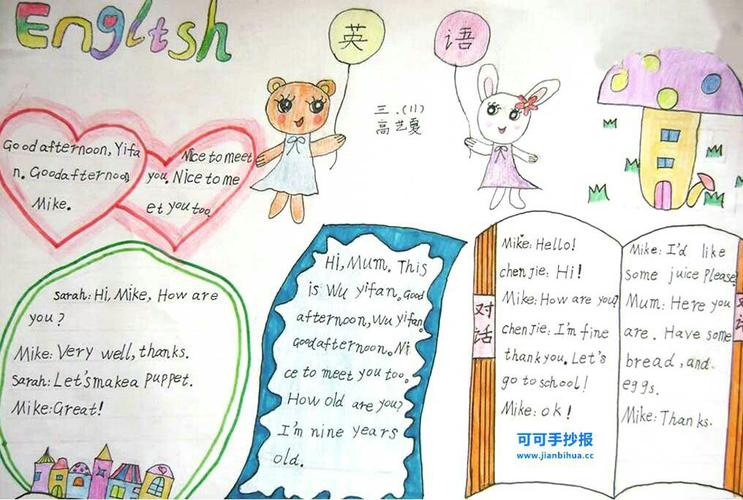 English
英 语
三.(11)
高艺夏
Good afternoon, Yifa
n. Goodafternoon
Mike.
Nice to meet
you. Nice to me
et you too.
Sarah: Hi, Mike, How are
you?
Mike: Very well, thanks.
Sarah: Let'smakea puppet.
Mike: Great!
Hi, Mum. This
is Wu yifan. Good
afternoon, Wu yifan.
Goodafternoon. Ni
ce to meet you too.
How old are you?
I'm nine years
old.
对话
Mike: Hello!
chen jie: Hi!
Mike: How are you?
chen jie: I'm fine
thankyou. Let's
go to school!
Mike: ok!
可可手抄报
www.jianbihua.cc
Mike: I'd like
some juice Please
Mum: Here you
are. Have some
bread, and
eggs.
Mike: Thanks.
对话